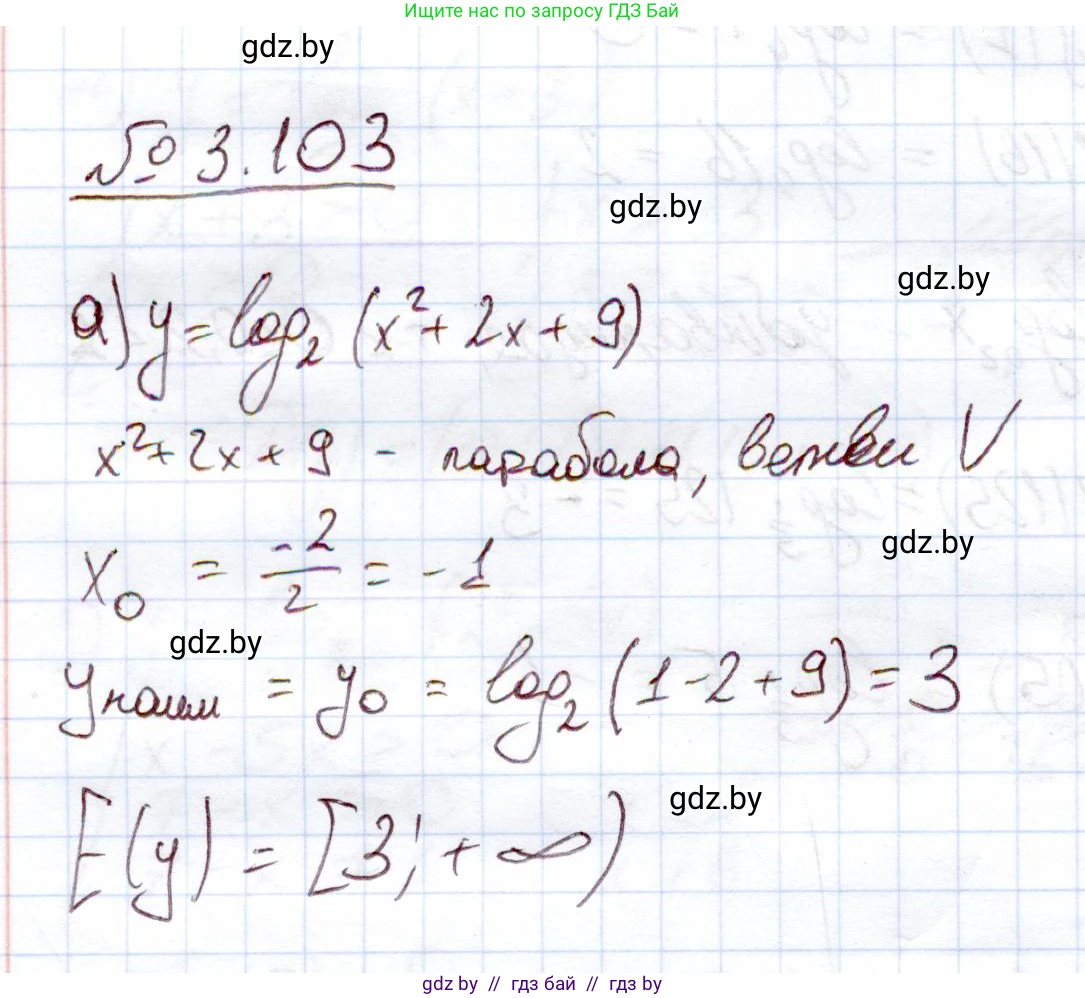 Ищите нас по запросу ГДЗ Бай
gdz.by
№ 3.103
gdz.by
gdz.by
а) y = log₂ (x² + 2x + 9)
x² + 2x + 9 - парабола, ветви V
gdz.by
x₀ = -2/2 = -1
gdz.by
yнаим = y₀ = log₂ (1 - 2 + 9) = 3
gdz.by
E(y) = [3; +∞)
gdz.by // гдз бай // gdz.by